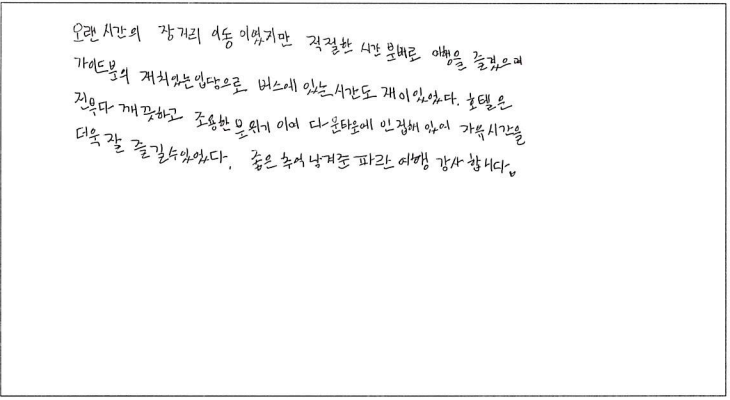 오랜 시간의 장거리 이동이었지만 적절한 시간 분배로 여행을 즐겼으며
가이드분의 재치있는 입담으로 버스에 있는 시간도 재미있었다. 호텔은
전부다 깨끗하고 조용한 분위기 이며 다운타운에 인접해 있어 자유시간을
더욱 잘 즐길수있었다. 좋은 추억 남겨준 파란 여행 감사 합니다.